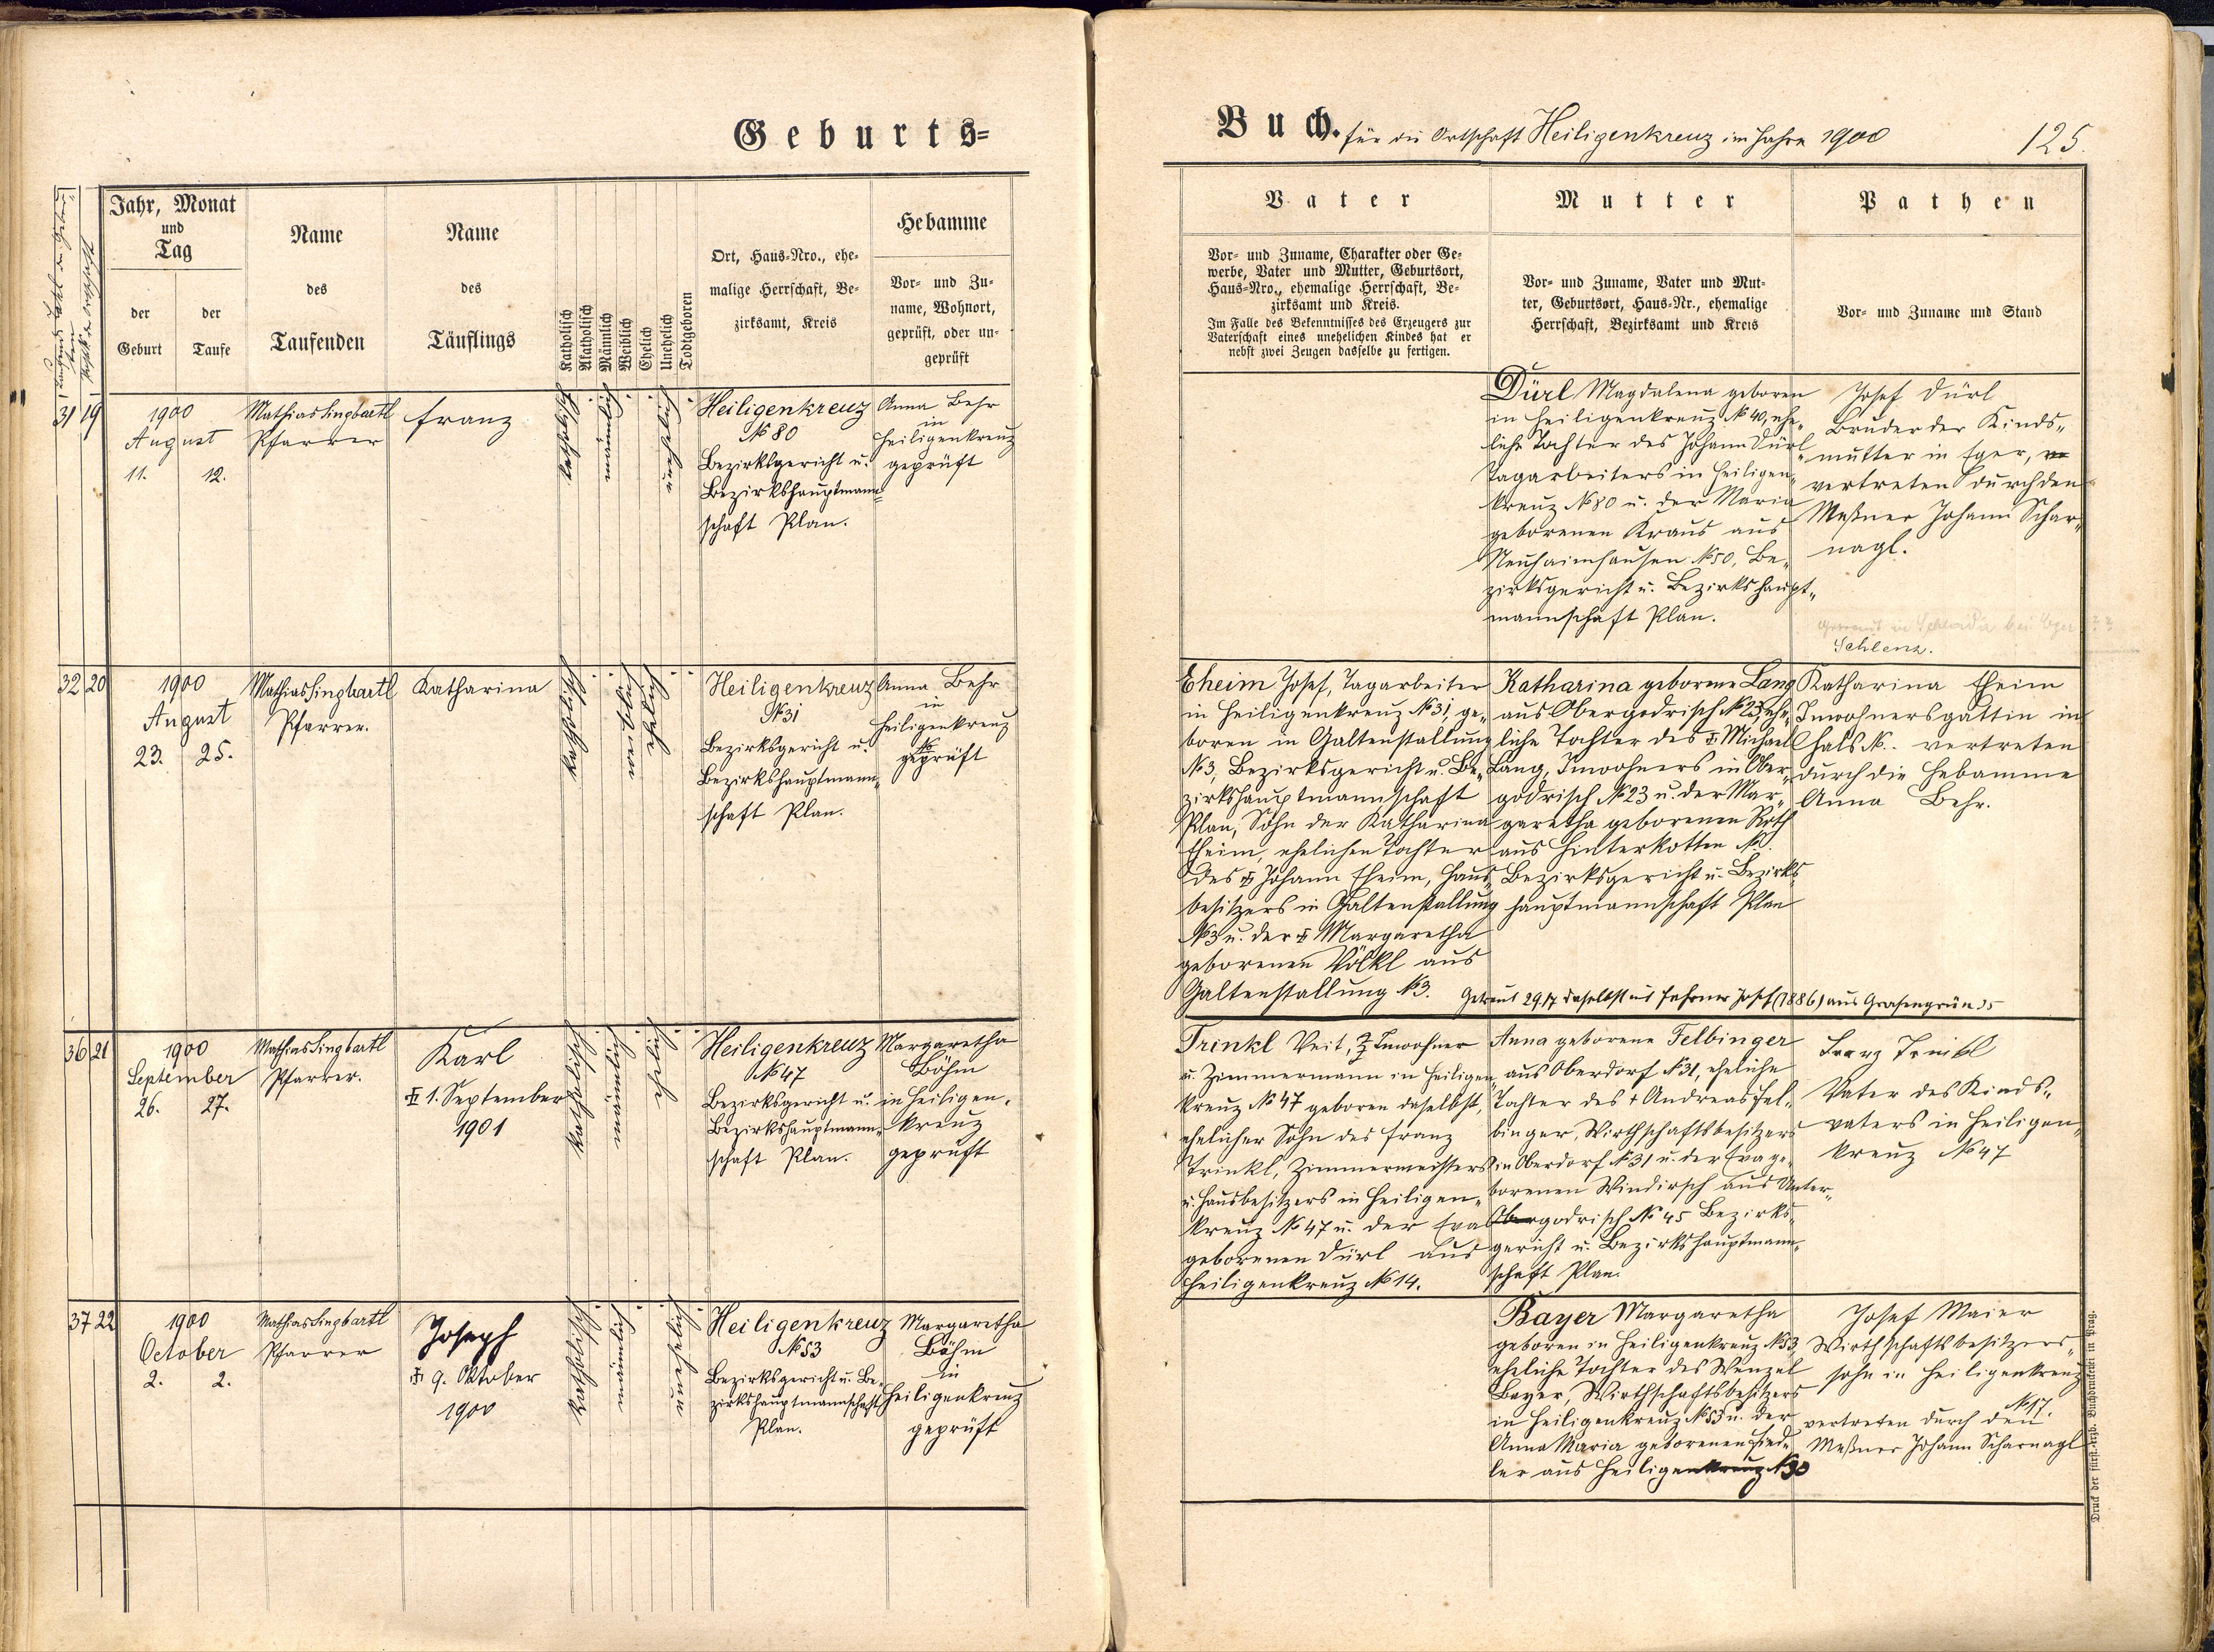 Geburts=
Jahr, Monat
und
Tag
der
Geburt
der
Taufe
Name
des
Taufenden
Name
des
Täuflings
Katholisch
Akatholisch
Männlich
Weiblich
Ehelich
Unehelich
Todtgeboren
Ort, Haus=Nro., ehe=
malige Herrschaft, Be=
zirksamt, Kreis
Hebamme
Vor= und Zu=
name, Wohnort,
geprüft, oder un=
geprüft
31 19
1900
August
11. 12.
Mathias Lingbartl
Pfarrer
Franz
katholisch
männlich
unehelich
Heiligenkreuz
№ 80
Bezirksgericht u.
Bezirkshauptmann=
schaft Plan.
Anna Behr
in
Heiligenkreuz
geprüft
32 20
1900
August
23. 25.
Mathias Lingbartl
Pfarrer.
Katharina
katholisch
weiblich
ehelich
Heiligenkreuz
№ 31
Bezirksgericht u.
Bezirkshauptmann=
schaft Plan.
Anna Behr
in
Heiligenkreuz
geprüft
36 21
1900
September
26. 27.
Mathias Lingbartl
Pfarrer.
Karl
1. September
1901
katholisch
männlich
ehelich
Heiligenkreuz
№ 47
Bezirksgericht u.
Bezirkshauptmann=
schaft Plan.
Margaretha
Böhm
in Heiligen=
kreuz
geprüft
37 22
1900
October
2. 2.
Mathias Lingbartl
Pfarrer
Joseph
9. Oktober
1900
katholisch
männlich
unehelich
Heiligenkreuz
№ 53
Bezirksgericht u. Be=
zirkshauptmannschaft
Plan.
Margaretha
Böhm
in
Heiligenkreuz
geprüft
Buch. für die Ortschaft Heiligenkreuz im Jahre 1900
125.
Vater
Vor= und Zuname, Charakter oder Ge=
werbe, Vater und Mutter, Geburtsort,
Haus=Nro., ehemalige Herrschaft, Be=
zirksamt und Kreis.
Im Falle des Bekenntnisses des Erzeugers zur
Vaterschaft eines unehelichen Kindes hat er
nebst zwei Zeugen dasselbe zu fertigen.
Mutter
Vor= und Zuname, Vater und Mut=
ter, Geburtsort, Haus=Nr., ehemalige
Herrschaft, Bezirksamt und Kreis
Pathen
Vor= und Zuname und Stand
Dürl Magdalena geboren
in Heiligenkreuz № 40, ehe=
liche Tochter des Johann Dürl
Tagarbeiters in Heiligen=
kreuz № 80 u. der Maria
geborenen Kraus aus
Neuhaimhausen № 50, Be=
zirksgericht u. Bezirkshaupt=
mannschaft Plan.
Josef Dürl
Bruder der Kinds=
mutter in Eger,
vertreten durch den
Meßner Johann Schar=
nagl.
Eheim Josef, Tagarbeiter
in Heiligenkreuz № 31, ge=
boren in Galtenstallung
№ 3, Bezirksgericht u. Be=
zirkshauptmannschaft
Plan, Sohn der Katharina
Eheim, ehelichen Tochter
des Johann Eheim, Haus=
besitzers in Galtenstallung
№ 3 u. der Margaretha
geborenen Völkl aus
Galtenstallung № 3.
Katharina geborene Lang
aus Obergodrisch № 23, ehe=
liche Tochter des Michael
Lang, Inwohners in Ober=
godrisch № 23 u. der Mar=
garetha geborenen Roth
aus Hinterkotten №.
Bezirksgericht u. Bezirks=
hauptmannschaft Plan
Katharina Eheim
Inwohnersgattin in
Hals №.. vertreten
durch die Hebamme
Anna Behr.
Trinkl Veit, Inwohner
u. Zimmermann in Heiligen=
kreuz № 47 geboren daselbst,
ehelicher Sohn des Franz
Trinkl, Zimmermeisters
u. Hausbesitzers in Heiligen=
kreuz № 47 u. der Eva
geborenen Dürl aus
Heiligenkreuz № 14.
Anna geborene Felbinger
aus Oberdorf № 31, eheliche
Tochter des † Andreas Fel=
binger, Wirthschaftsbesitzers
in Oberdorf № 31 u. der Eva ge=
borenen Windirsch aus Unter=
godrisch № 45 Bezirks=
gericht u. Bezirkshauptmann=
schaft Plan.
Franz Trinkl
Vater des Kinds=
vaters in Heiligen=
kreuz № 47
Bayer Margaretha
geboren in Heiligenkreuz № 53,
eheliche Tochter des Wenzel
Bayer, Wirthschaftsbesitzers
in Heiligenkreuz № 53 u. der
Anna Maria geborenen Fied=
ler aus Heiligenkreuz № 30
Josef Maier
Wirthschaftsbesitzers=
sohn in Heiligenkreuz
№ 17.
vertreten durch den
Meßner Johann Scharnagl
Druck der fürst.=erzb. Buchdruckerei in Prag.